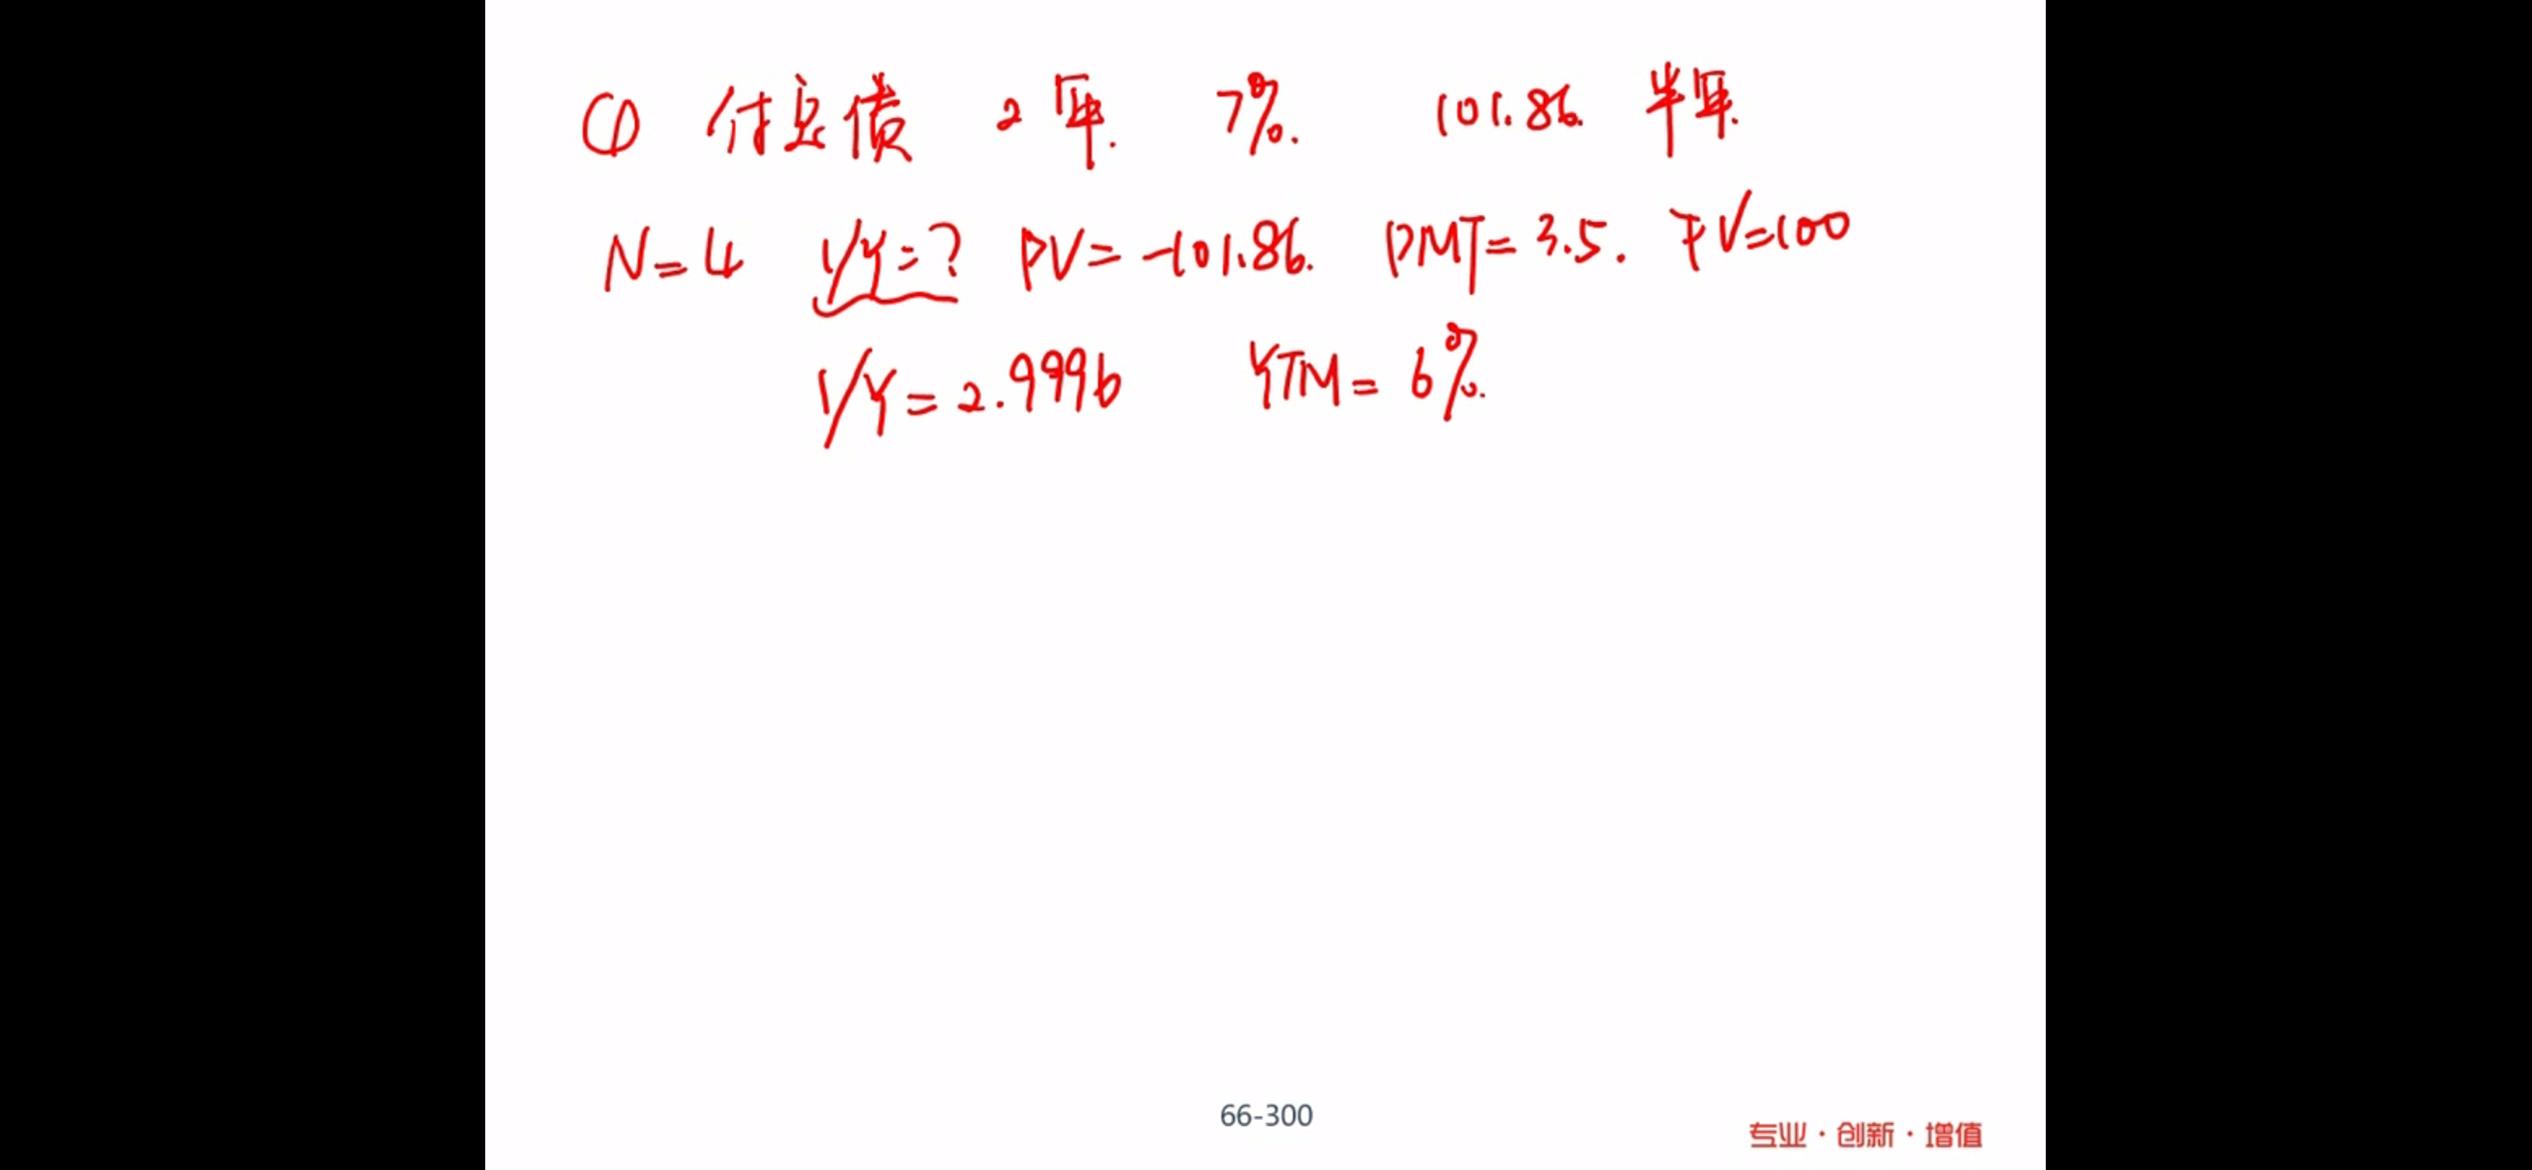 ① 付息债 2年. 7%. 101.86. 半年.
N=4 I/Y=? PV=-101.86. PMT=3.5. FV=100
I/Y=2.9996 YTM=6%.
66-300
专业·创新·增值